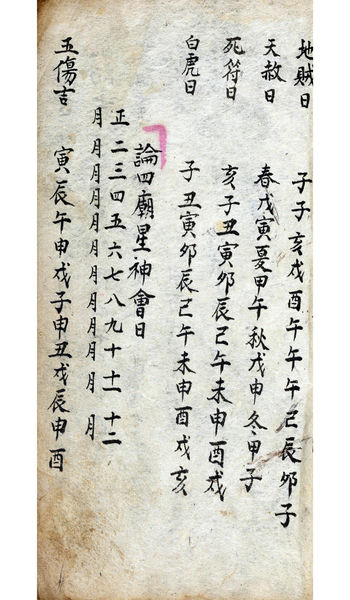 地賊日 子子亥戌酉午午午巳辰卯子
天赦日 春戊寅夏甲午秋戊申冬甲子
死符日 亥子丑寅卯辰巳午未申酉戌
白虎日 子丑寅卯辰巳午未申酉戌亥
論四廟星神會日
正二三四五六七八九十十一十二
月月月月月月月月月月月月
五傷吉 寅辰午申戌子申丑戌辰申酉